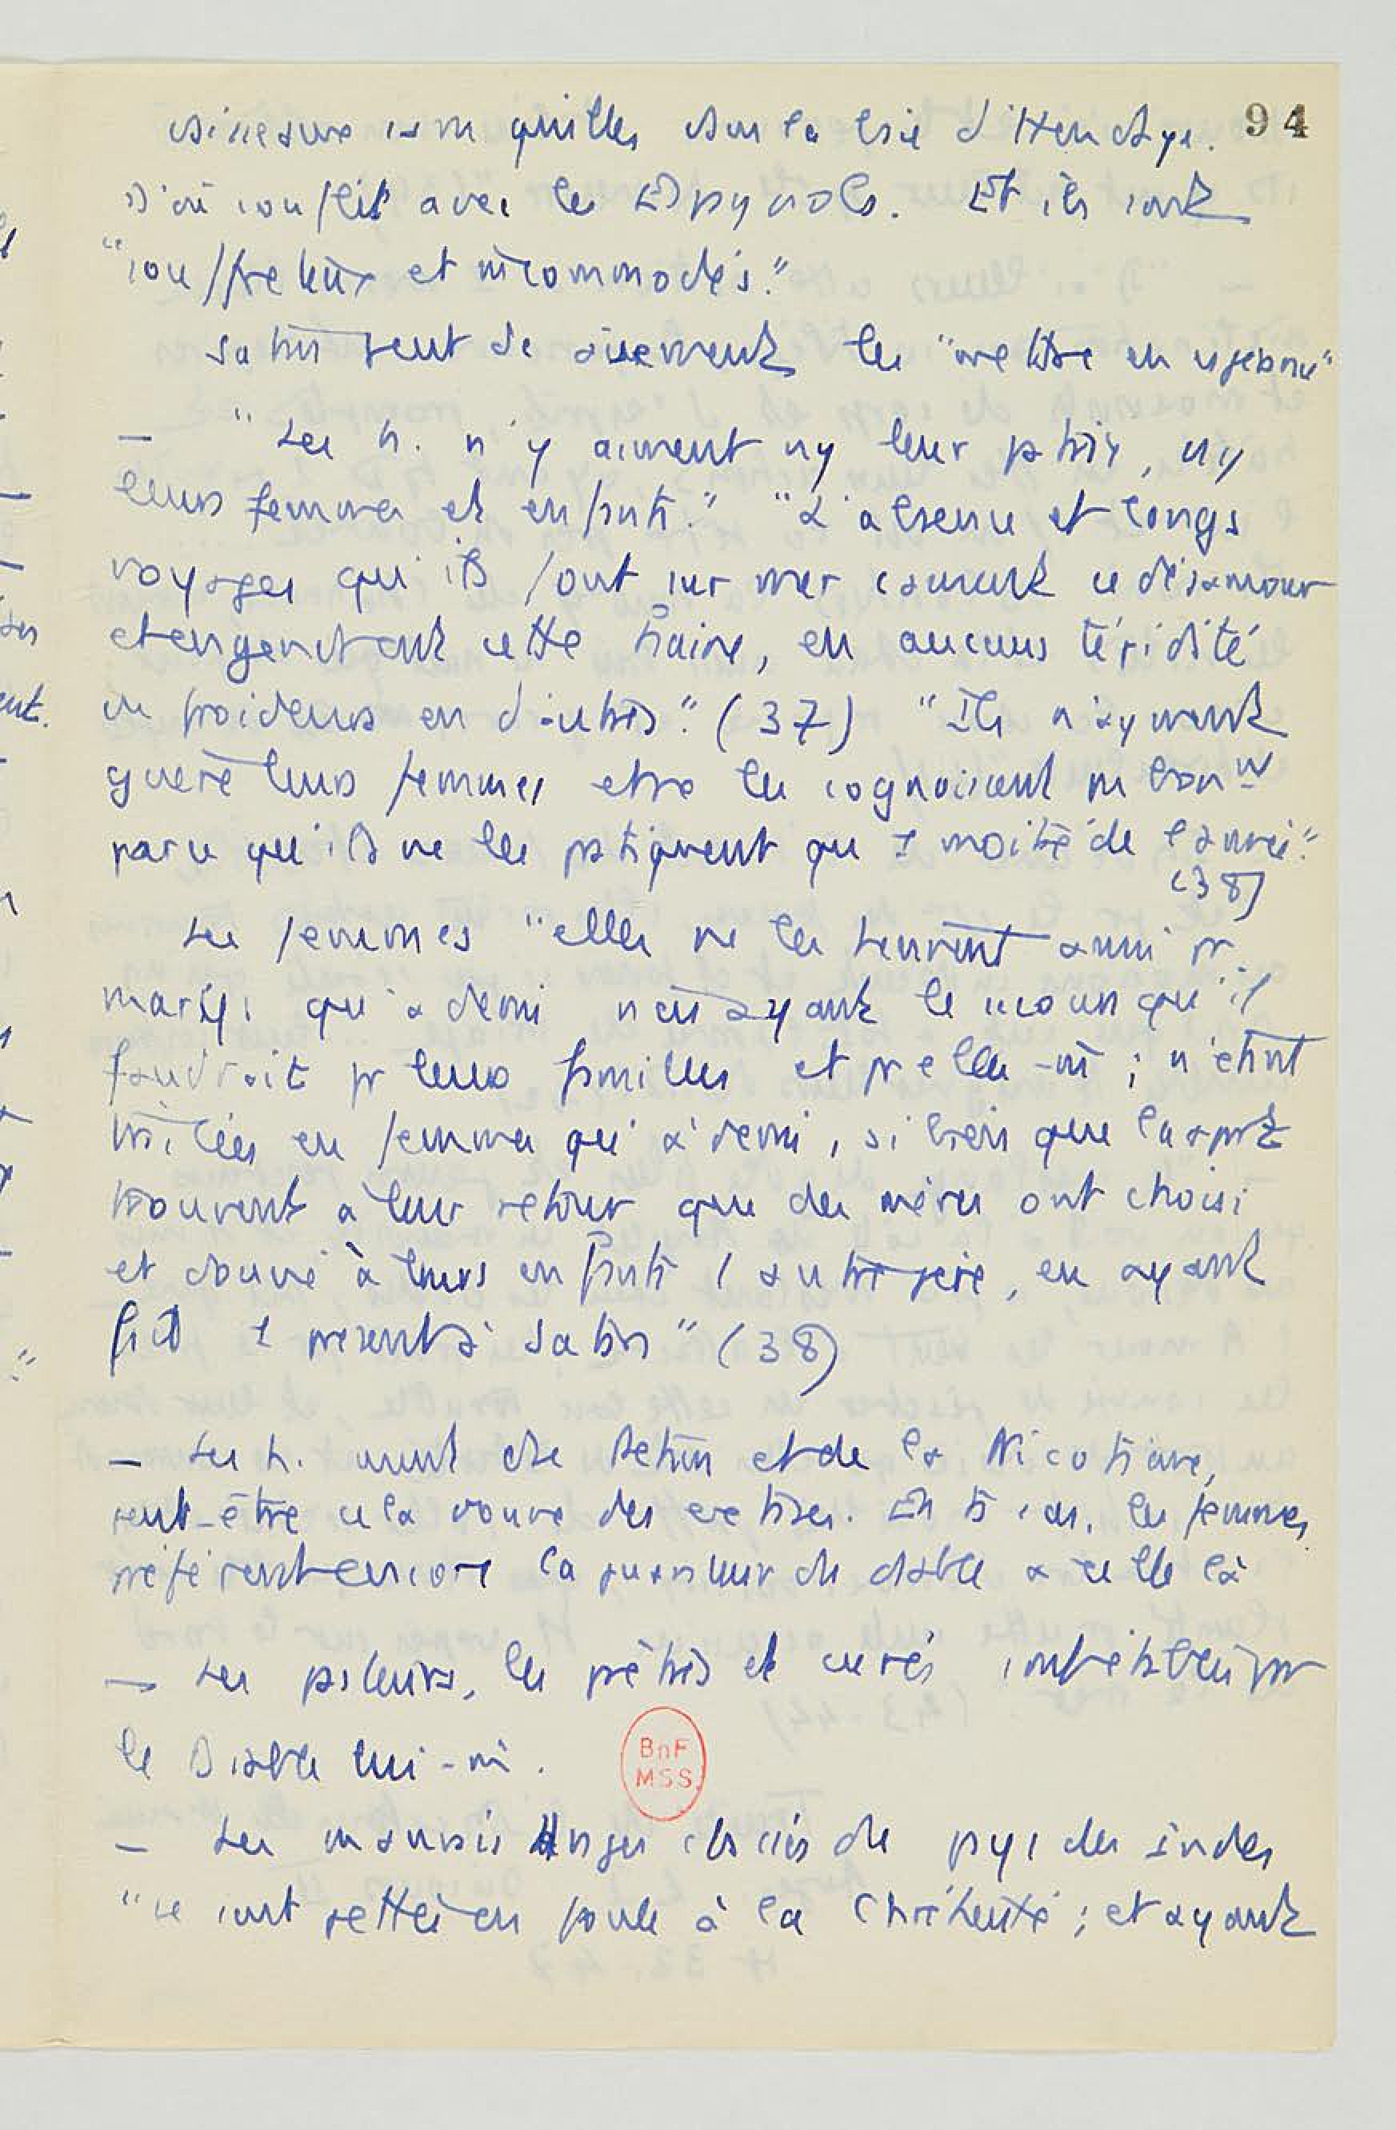 94
sur la baie d'Hendaye.
D'où conflit avec les Espagnols. Et ils sont
"souffreteux et incommodés."
Satan veut les "mettre en
— "Les h. n'y aiment ny leur patrie, ny
leurs femmes et enfants." "L'absence et longs
voyages qu'ils font sur mer causent ce désamour
et engendrent cette haine, en aucuns tépidité
ou froideur en d'autres." (37) "Ils n'ayment
guère leurs femmes et ne les cognoissent pas bonnement
parce qu'ils ne les pratiquent que la moitié de l'année."
(38)
Les femmes "elles ne les treuvent aussi pr
marys qu'à demi n'en ayant le secours qu'il
faudroit pr leurs familles et pr elles-m̄ ; n'étant
traitées en femmes qu'à demi, si bien que la part
trouvent à leur retour que des mères ont choisi
et donné à leurs enfants 1 autre père, en ayant
fait 1 présent à Satan" (38)
— Les h. usent de Petun et de la Nicotiane,
peut-être cela donne des extases. En ts cas, les femmes
préfèrent encore la puanteur du diable à celle là
— Les pasteurs, les prêtres et curés sont établis par
le Diable lui-m̄.
— Les mauvais Anges chassés du pays des Indes
"se sont jettés en foule à la Chrétienté ; et ayant
BnF
MSS